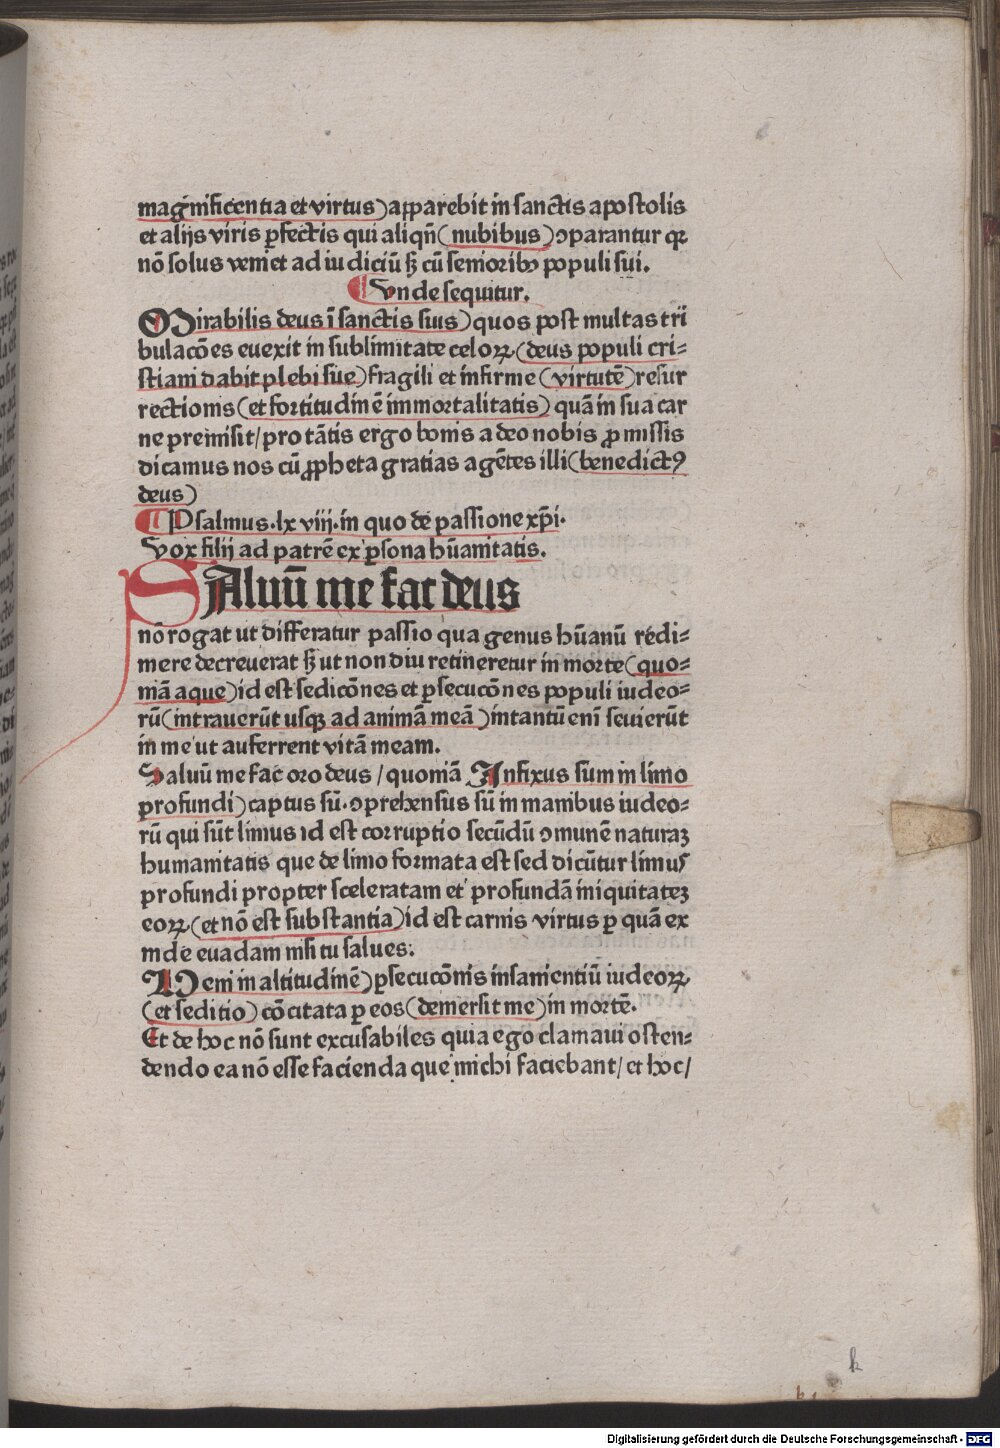 magnificentia et virtus) apparebit in sanctis apostolis
et alijs viris ꝑfectis qui aliqn̄ (nubibus) ꝯparantur qꝛ
nō solus veniet ad iudiciū sꝫ cū senioribꝰ populi sui.
¶ Vnde sequitur.
Mirabilis deus ī sanctis suis) quos post multas tri
bulacōes euexit in sublimitate celoꝝ (deus populi cri⸗
stiani dabit plebi sue) fragili et infirme (virtutē) resur
rectionis (et fortitudinē immortalitatis) quā in sua car
ne premisit / pro tātis ergo bonis a deo nobis ꝓmissis
dicamus nos cū ꝓpheta gratias agētes illi (benedictꝰ
deus)
¶ Psalmus .lxviij. in quo de passione xp̄i.
Vox filij ad patrē ex ꝑsona hūanitatis.
SAluū me fac deus
nō rogat ut differatur passio qua genus hūanū redi⸗
mere decreuerat sꝫ ut non diu retineretur in morte (quo⸗
niā aque) id est sedicōnes et ꝑsecucōnes populi iudeo⸗
rū (intrauerūt usqꝫ ad animā meā) intantū enī seuierūt
in me ut auferrent vitā meam.
Saluū me fac oro deus / quoniā Infixus sum in limo
profundi) captus sū. ꝯprehensus sū in manibus iudeo⸗
rū qui sūt limus id est corruptio secūdū ꝯmunē naturaꝫ
humanitatis que de limo formata est sed dicūtur limus
profundi propter sceleratam et profundā iniquitateꝫ
eoꝝ (et nō est substantia) id est carnis virtus ꝑ quā ex
inde euadam nisi tu salues.
Veni in altitudinē) ꝑsecucōnis insanientiū iudeoꝝ
(et seditio) cōcitata ꝑ eos (demersit me) in mortē.
Et de hoc nō sunt excusabiles quia ego clamaui osten⸗
dendo ea nō esse facienda que michi faciebant / et hoc /
k
Digitalisierung gefördert durch die Deutsche Forschungsgemeinschaft - DFG